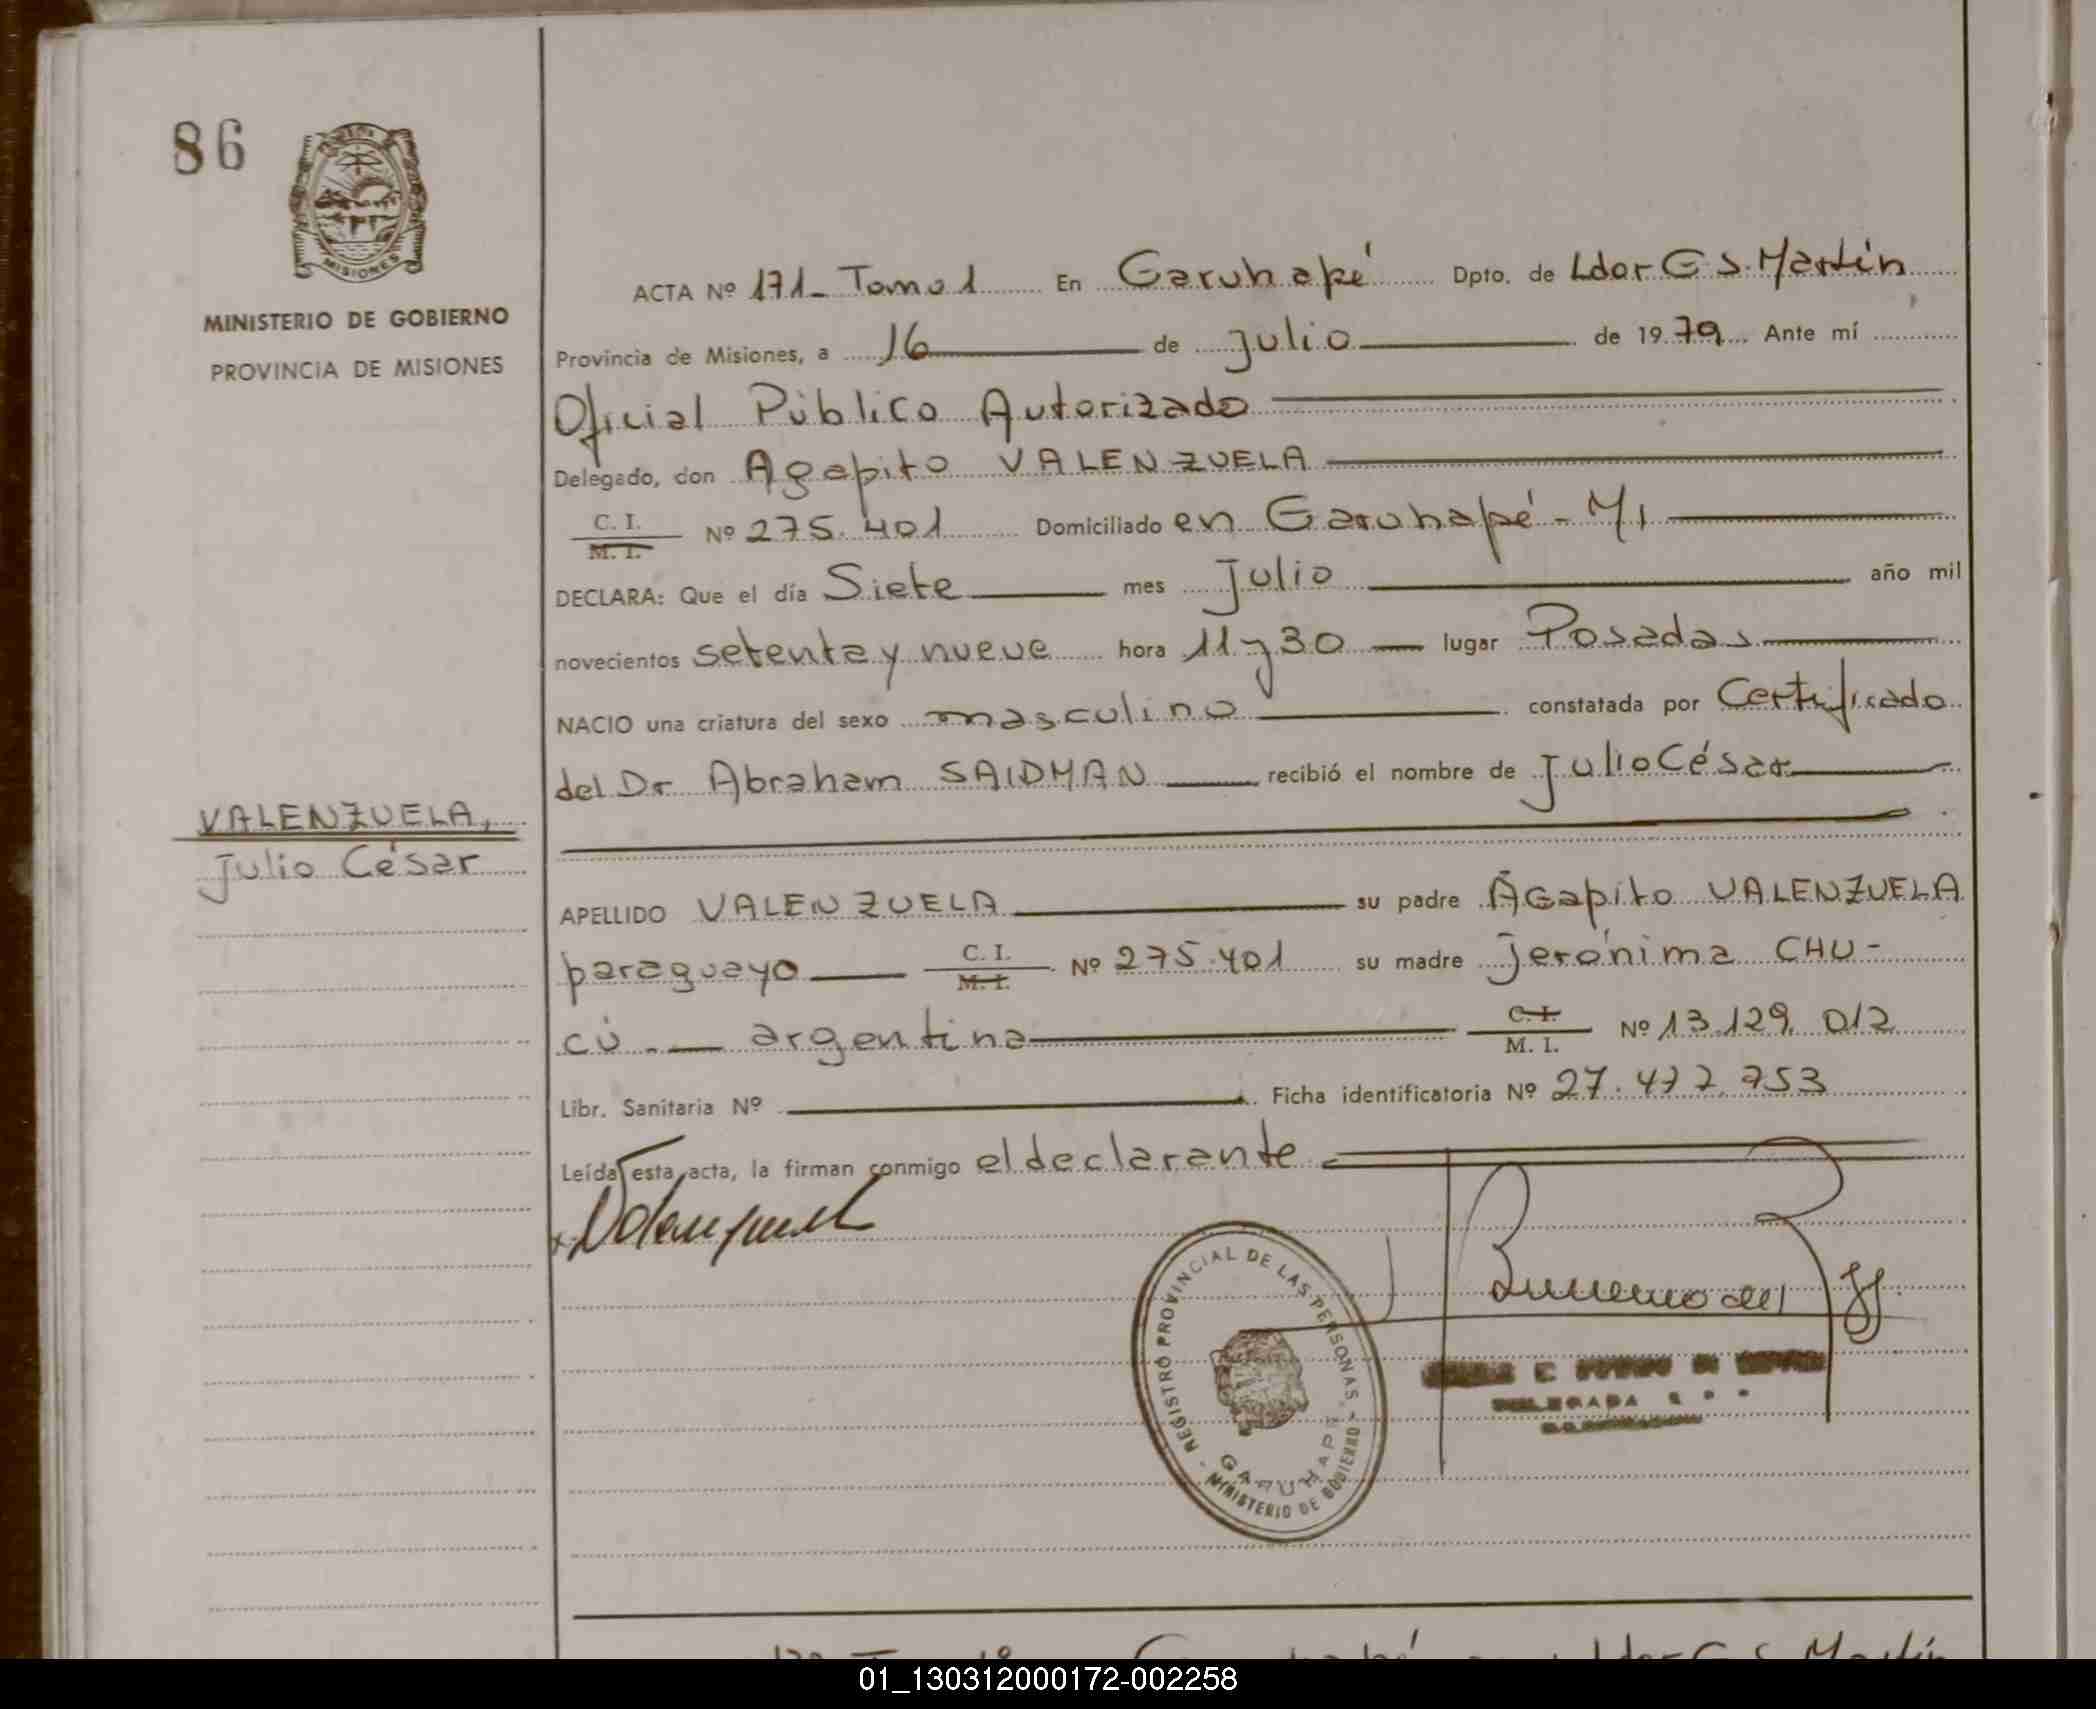 86
MISIONES
MINISTERIO DE GOBIERNO
PROVINCIA DE MISIONES
VALENZUELA,
Julio César
ACTA Nº 171_ Tomo 1 En Garuhapé Dpto. de Ldor G S. Martín
Provincia de Misiones, a 16 de julio de 1979 Ante mí
Oficial Público Autorizado
Delegado, don Agapito VALENZUELA
C. I.
M. I. Nº 275.401 Domiciliado en Garuhapé - M1
DECLARA: Que el día Siete mes julio año mil
novecientos setenta y nueve hora 11 y 30 lugar Posadas
NACIO una criatura del sexo masculino constatada por Certificado
del Dr Abraham SAIDMAN recibió el nombre de Julio César
APELLIDO VALENZUELA su padre Agapito VALENZUELA
paraguayo C. I. M. I. Nº 275.401 su madre Jerónima CHU-
cú argentina C. I. M. I. Nº 13.129.012
Libr. Sanitaria Nº Ficha identificatoria Nº 27.477.753
Leída esta acta, la firman conmigo el declarante
REGISTRO PROVINCIAL DE LAS PERSONAS - MINISTERIO DE GOBIERNO -
GARUHAPE
DELEGADA
01_130312000172-002258